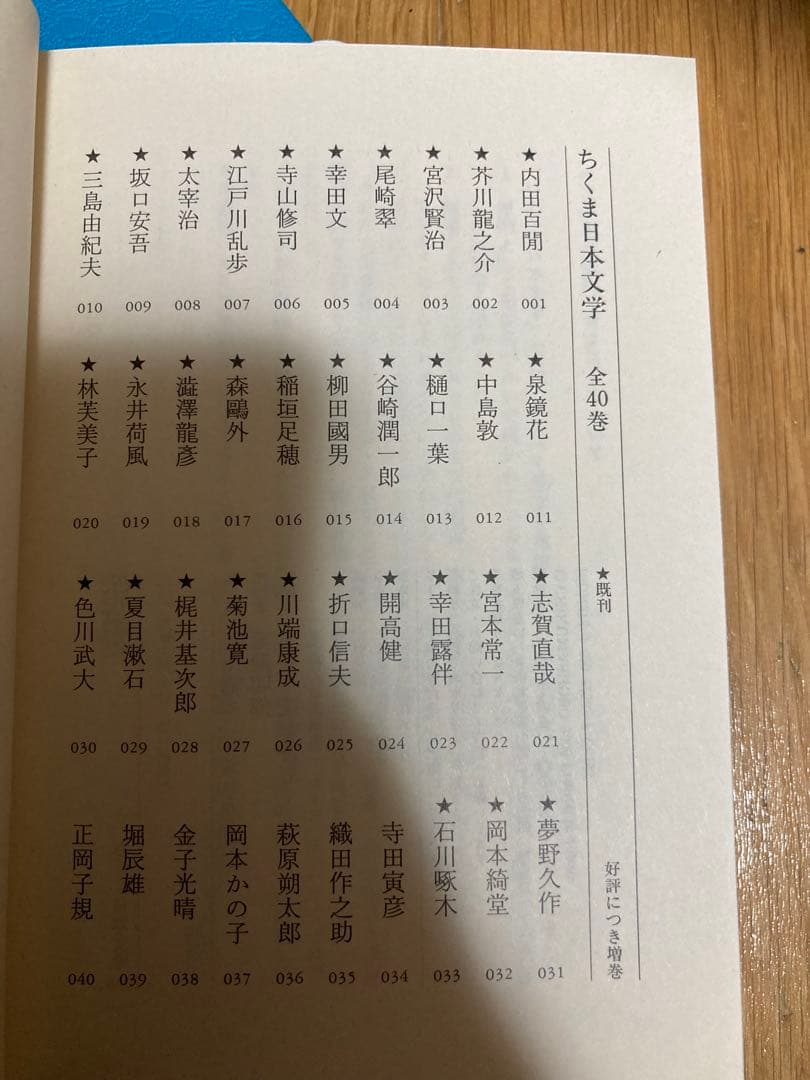 ちくま日本文学 全40巻 ★既刊 好評につき増巻
★内田百閒 001
★芥川龍之介 002
★宮沢賢治 003
★尾崎翠 004
★幸田文 005
★寺山修司 006
★江戸川乱歩 007
★太宰治 008
★坂口安吾 009
★三島由紀夫 010
★泉鏡花 011
★中島敦 012
★樋口一葉 013
★谷崎潤一郎 014
★柳田國男 015
★稲垣足穂 016
★森鷗外 017
★澁澤龍彥 018
★永井荷風 019
★林芙美子 020
★志賀直哉 021
★宮本常一 022
★幸田露伴 023
★開高健 024
★折口信夫 025
★川端康成 026
★菊池寛 027
★梶井基次郎 028
★夏目漱石 029
★色川武大 030
★夢野久作 031
★岡本綺堂 032
★石川啄木 033
寺田寅彦 034
織田作之助 035
萩原朔太郎 036
岡本かの子 037
金子光晴 038
堀辰雄 039
正岡子規 040